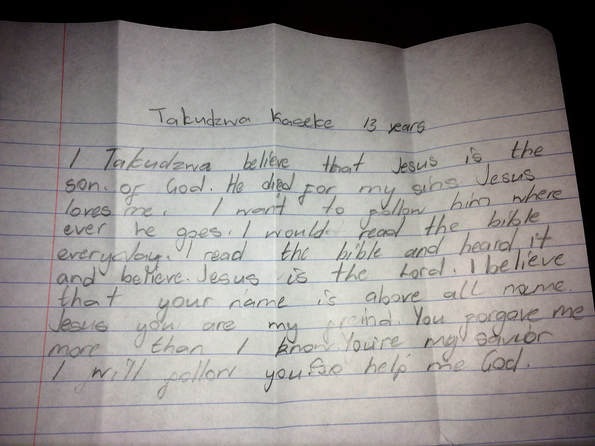 Takudzwa Kaseke 13 years
I Takudzwa believe that Jesus is the
son. of God. He died for my sins Jesus
loves me. I want to follow him where
ever he goes. I would read the bible
everyday. I read the bible and heard it
and believe. Jesus is the Lord. I believe
that your name is above all name.
Jesus you are my freind. You forgave me
more than I know You're my savior
I will follow you help me God.